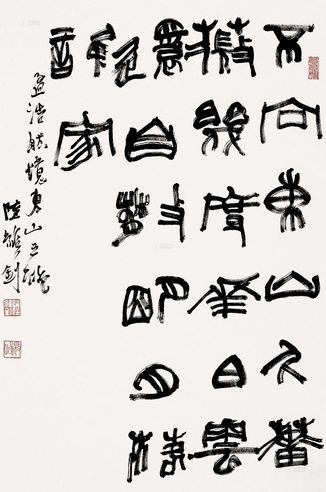 不向東山久薔
薇幾度花白雲
還自散明月落
誰家
浩 境東山
陸維釗